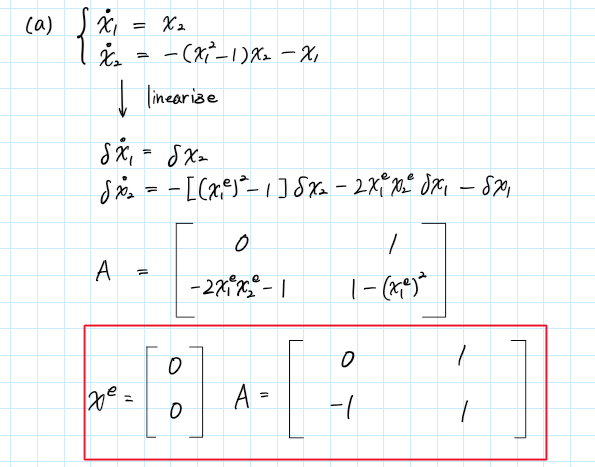 (a) { ẋ₁ = x₂
ẋ₂ = -(x₁²-1)x₂ - x₁
↓ linearize
δẋ₁ = δx₂
δẋ₂ = -[(x₁ᵉ)²-1]δx₂ - 2x₁ᵉx₂ᵉ δx₁ - δx₁
A = [ 0 1
-2x₁ᵉx₂ᵉ-1 1-(x₁ᵉ)² ]
xᵉ = [ 0 0 ] A = [ 0 1
-1 1 ]